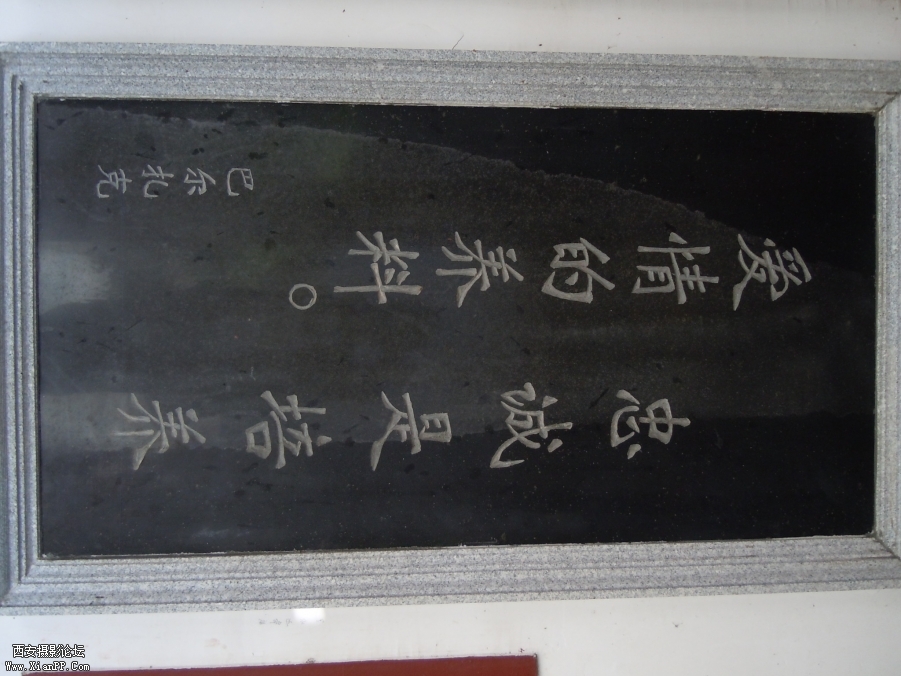 忠诚是培养
爱情的养料。
巴尔札克
西安摄影论坛
www.XianPP.Com